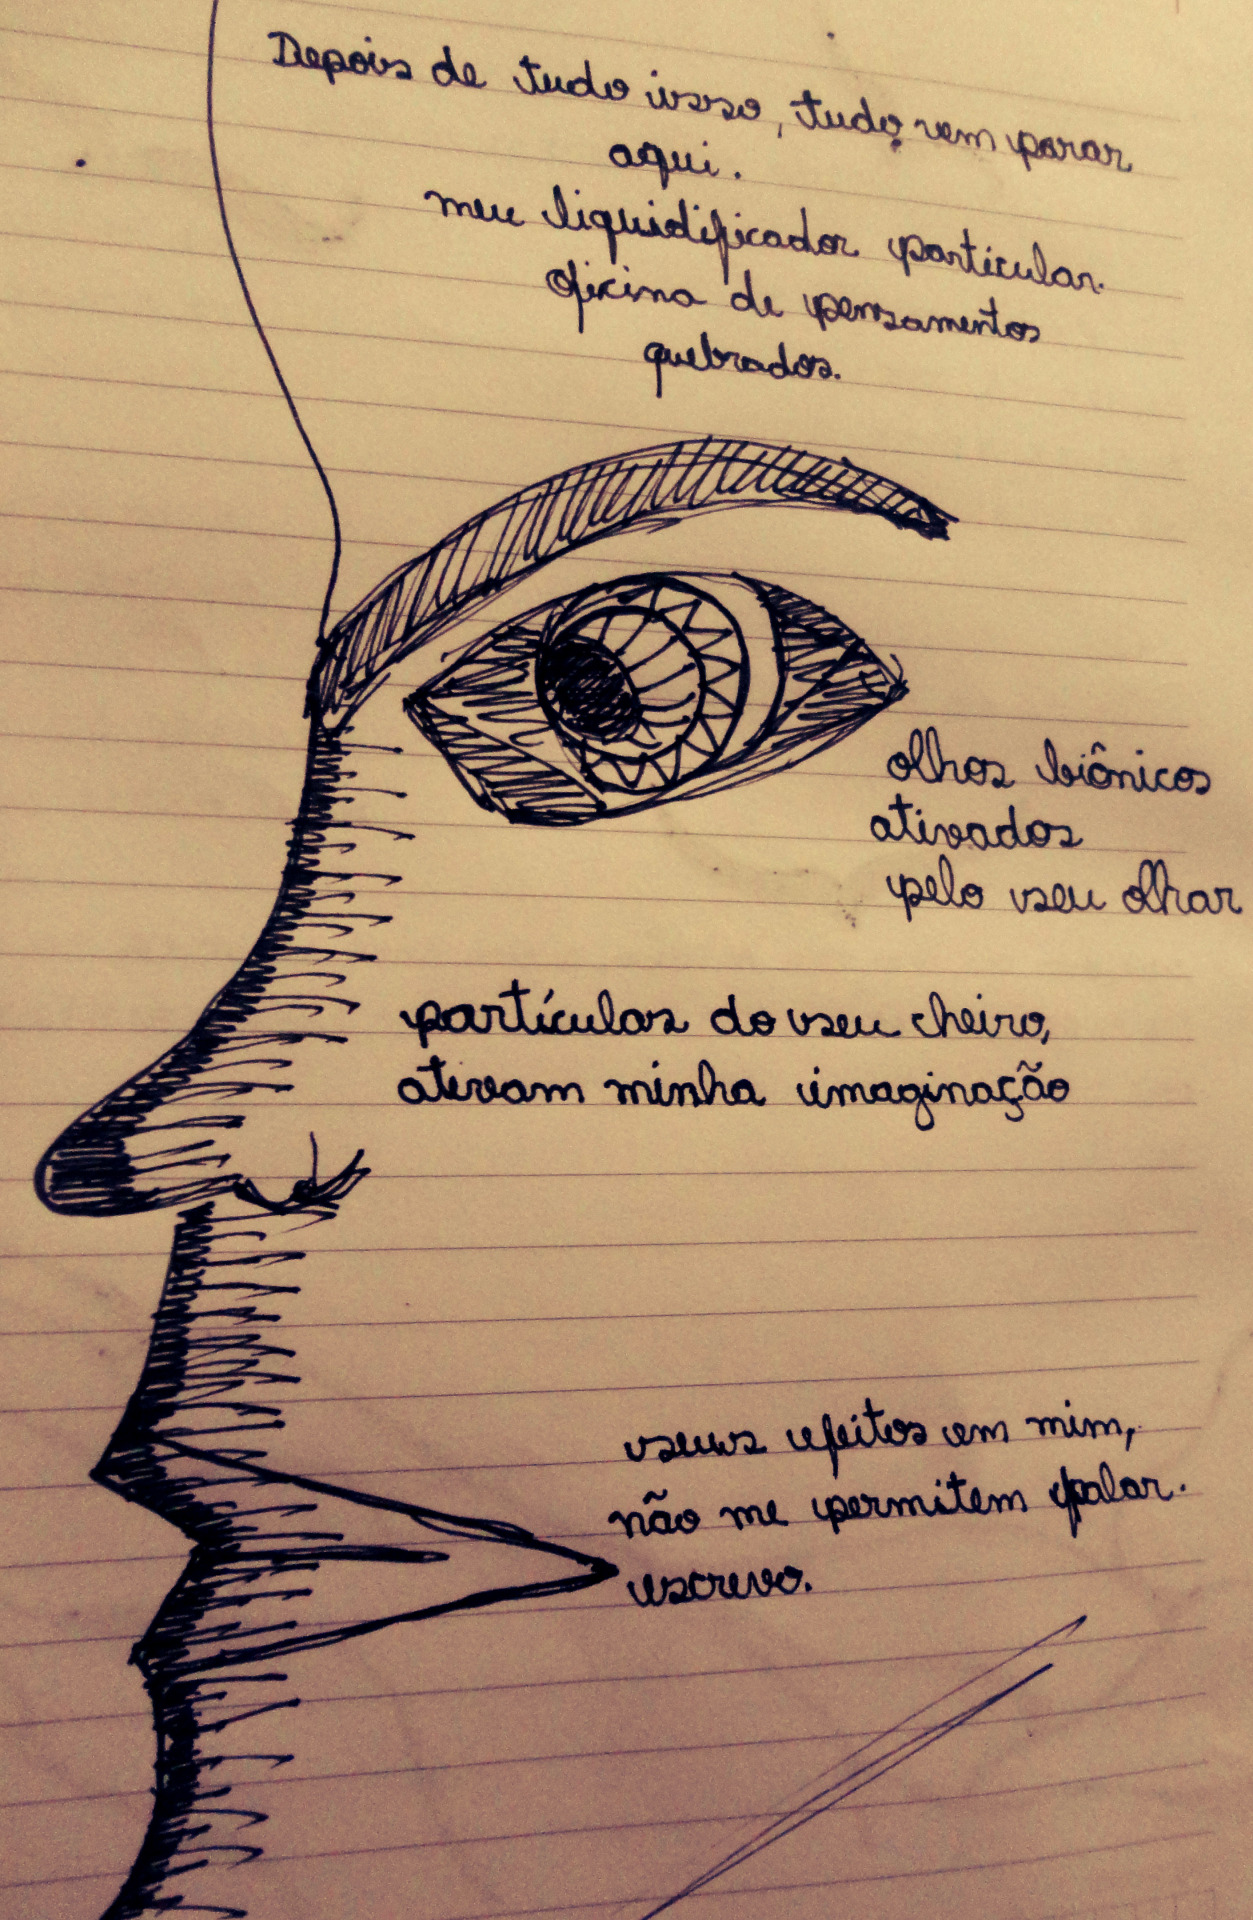 Depois de tudo isso, tudo vem parar
aqui.
meu liquidificador particular.
oficina de pensamentos
quebrados.
olhos biônicos
ativados
pelo seu olhar
partículas do seu cheiro,
ativam minha imaginação
seus efeitos em mim,
não me permitem falar.
escrevo.